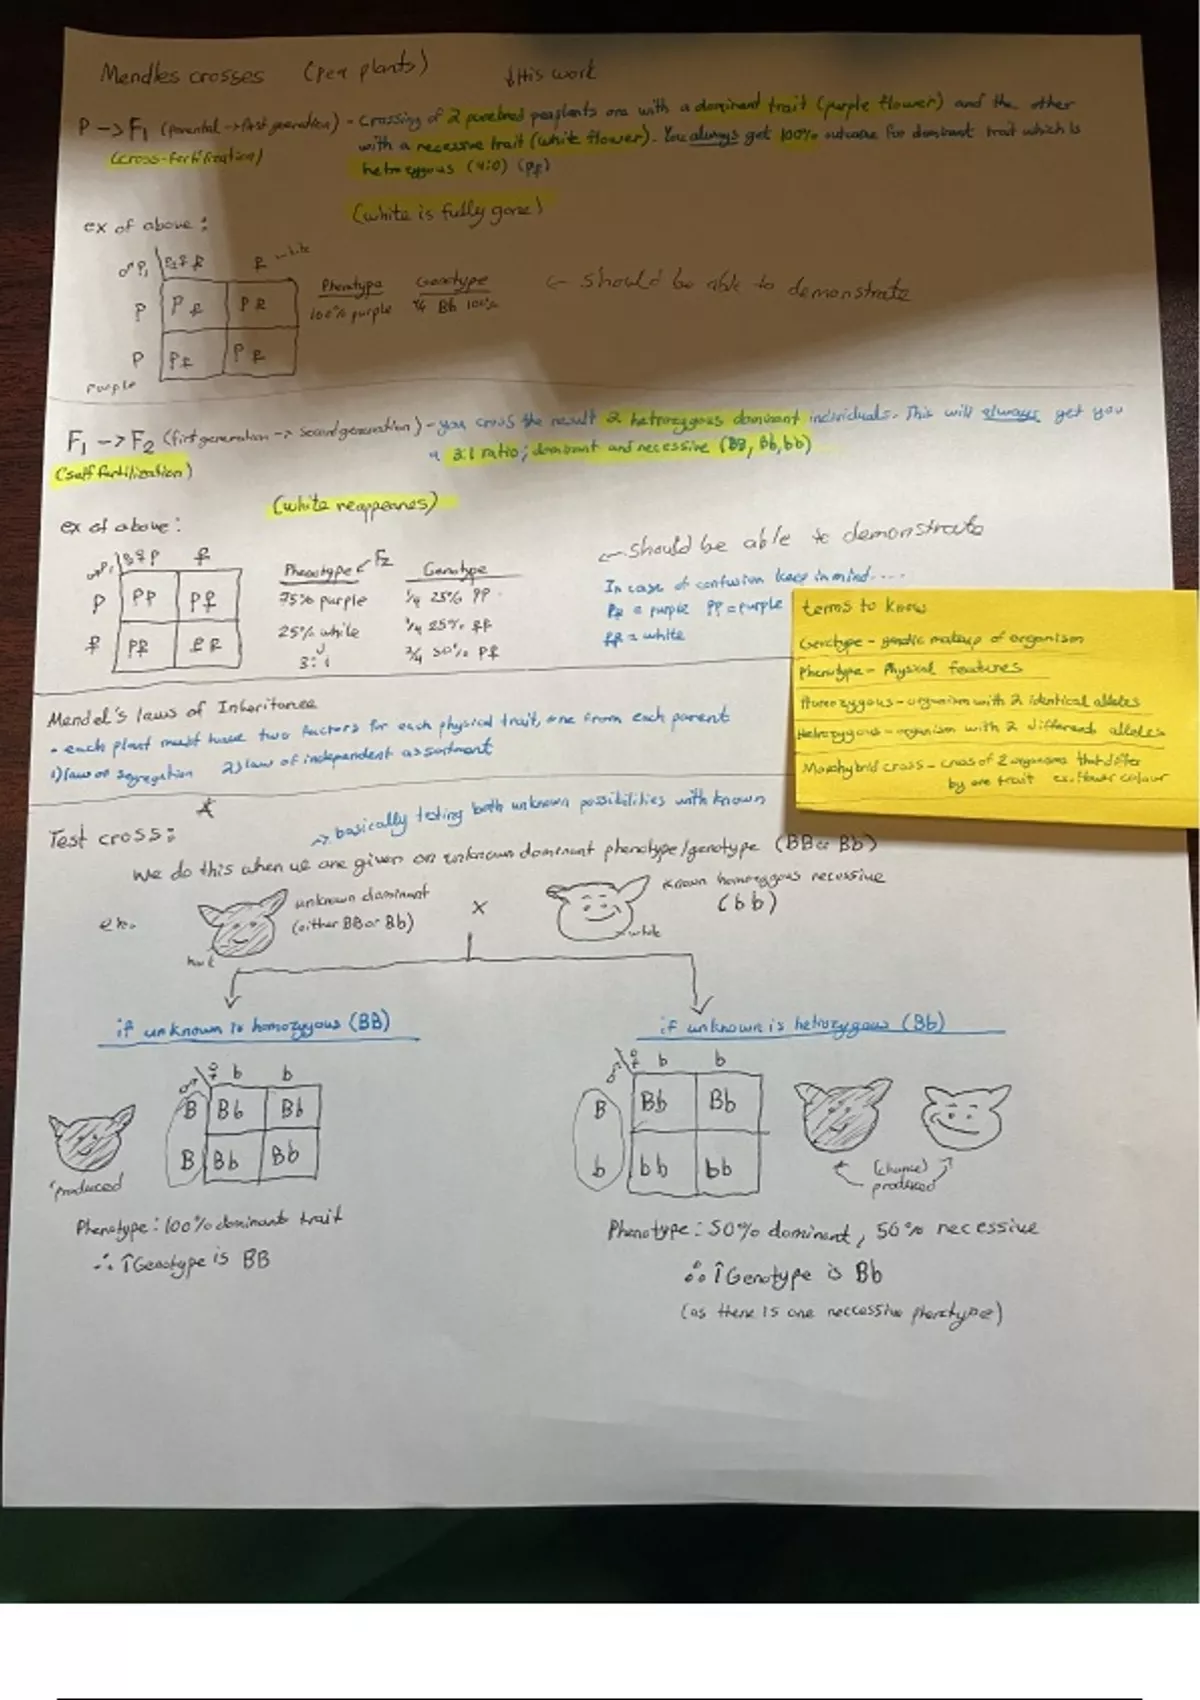 Mendles crosses (pea plants) ↓His work
P -> F1 (parental -> first generation) - crossing of 2 purebred peaplants one with a dominant trait (purple flower) and the other
(cross-fertilization) with a recessive trait (white flower). You always get 100% outcome for dominant trait which is
hetrozygous (4:0) (Pp)
(white is fully gone)
ex of above:
white
♂ P
Phenotype Genotype <- should be able to demonstrate
100% purple 4/4 Bb 100%
P
P
purple
F1 -> F2 (first generation -> second generation) - you cross the result 2 hetrozygous dominant individuals. This will always get you
(self fertilization) a 3:1 ratio; dominant and recessive (BB, Bb, bb)
(white reappears)
ex of above:
<- should be able to demonstrate
Phenotype F2 Genotype
P PP Pp
75% purple 1/4 25% PP
p Pp pp
25% white 1/4 25% pp
3:1 2/4 50% Pp
In case of confusion keep in mind....
Pp = purple PP = purple
pp = white
terms to know
Genotype - genetic makeup of organism
Phenotype - Physical features
Homozygous - organism with 2 identical alleles
Hetrozygous - organism with 2 different alleles
Monohybrid cross - cross of 2 organisms that differ
by one trait ex. flower colour
Mendel's laws of Inheritance
• each plant must have two factors for each physical trait, one from each parent
1) law of segregation 2) law of independent assortment
Test cross: -> basically testing both unknown possibilities with known
We do this when we are given an unknown dominant phenotype/genotype (BB or Bb)
ex. unknown dominant x known homozygous recessive
(either BB or Bb) (bb)
white
if unknown is homozygous (BB) if unknown is hetrozygous (Bb)
♂ ♀ b b
B Bb Bb
B Bb Bb
produced
Phenotype: 100% dominant trait
∴ ↑Genotype is BB
♂ ♀ b b
B Bb Bb
b bb bb
(chance)
produced
Phenotype: 50% dominant, 50% recessive
∴ ↑Genotype is Bb
(as there is one reccessive phenotype)